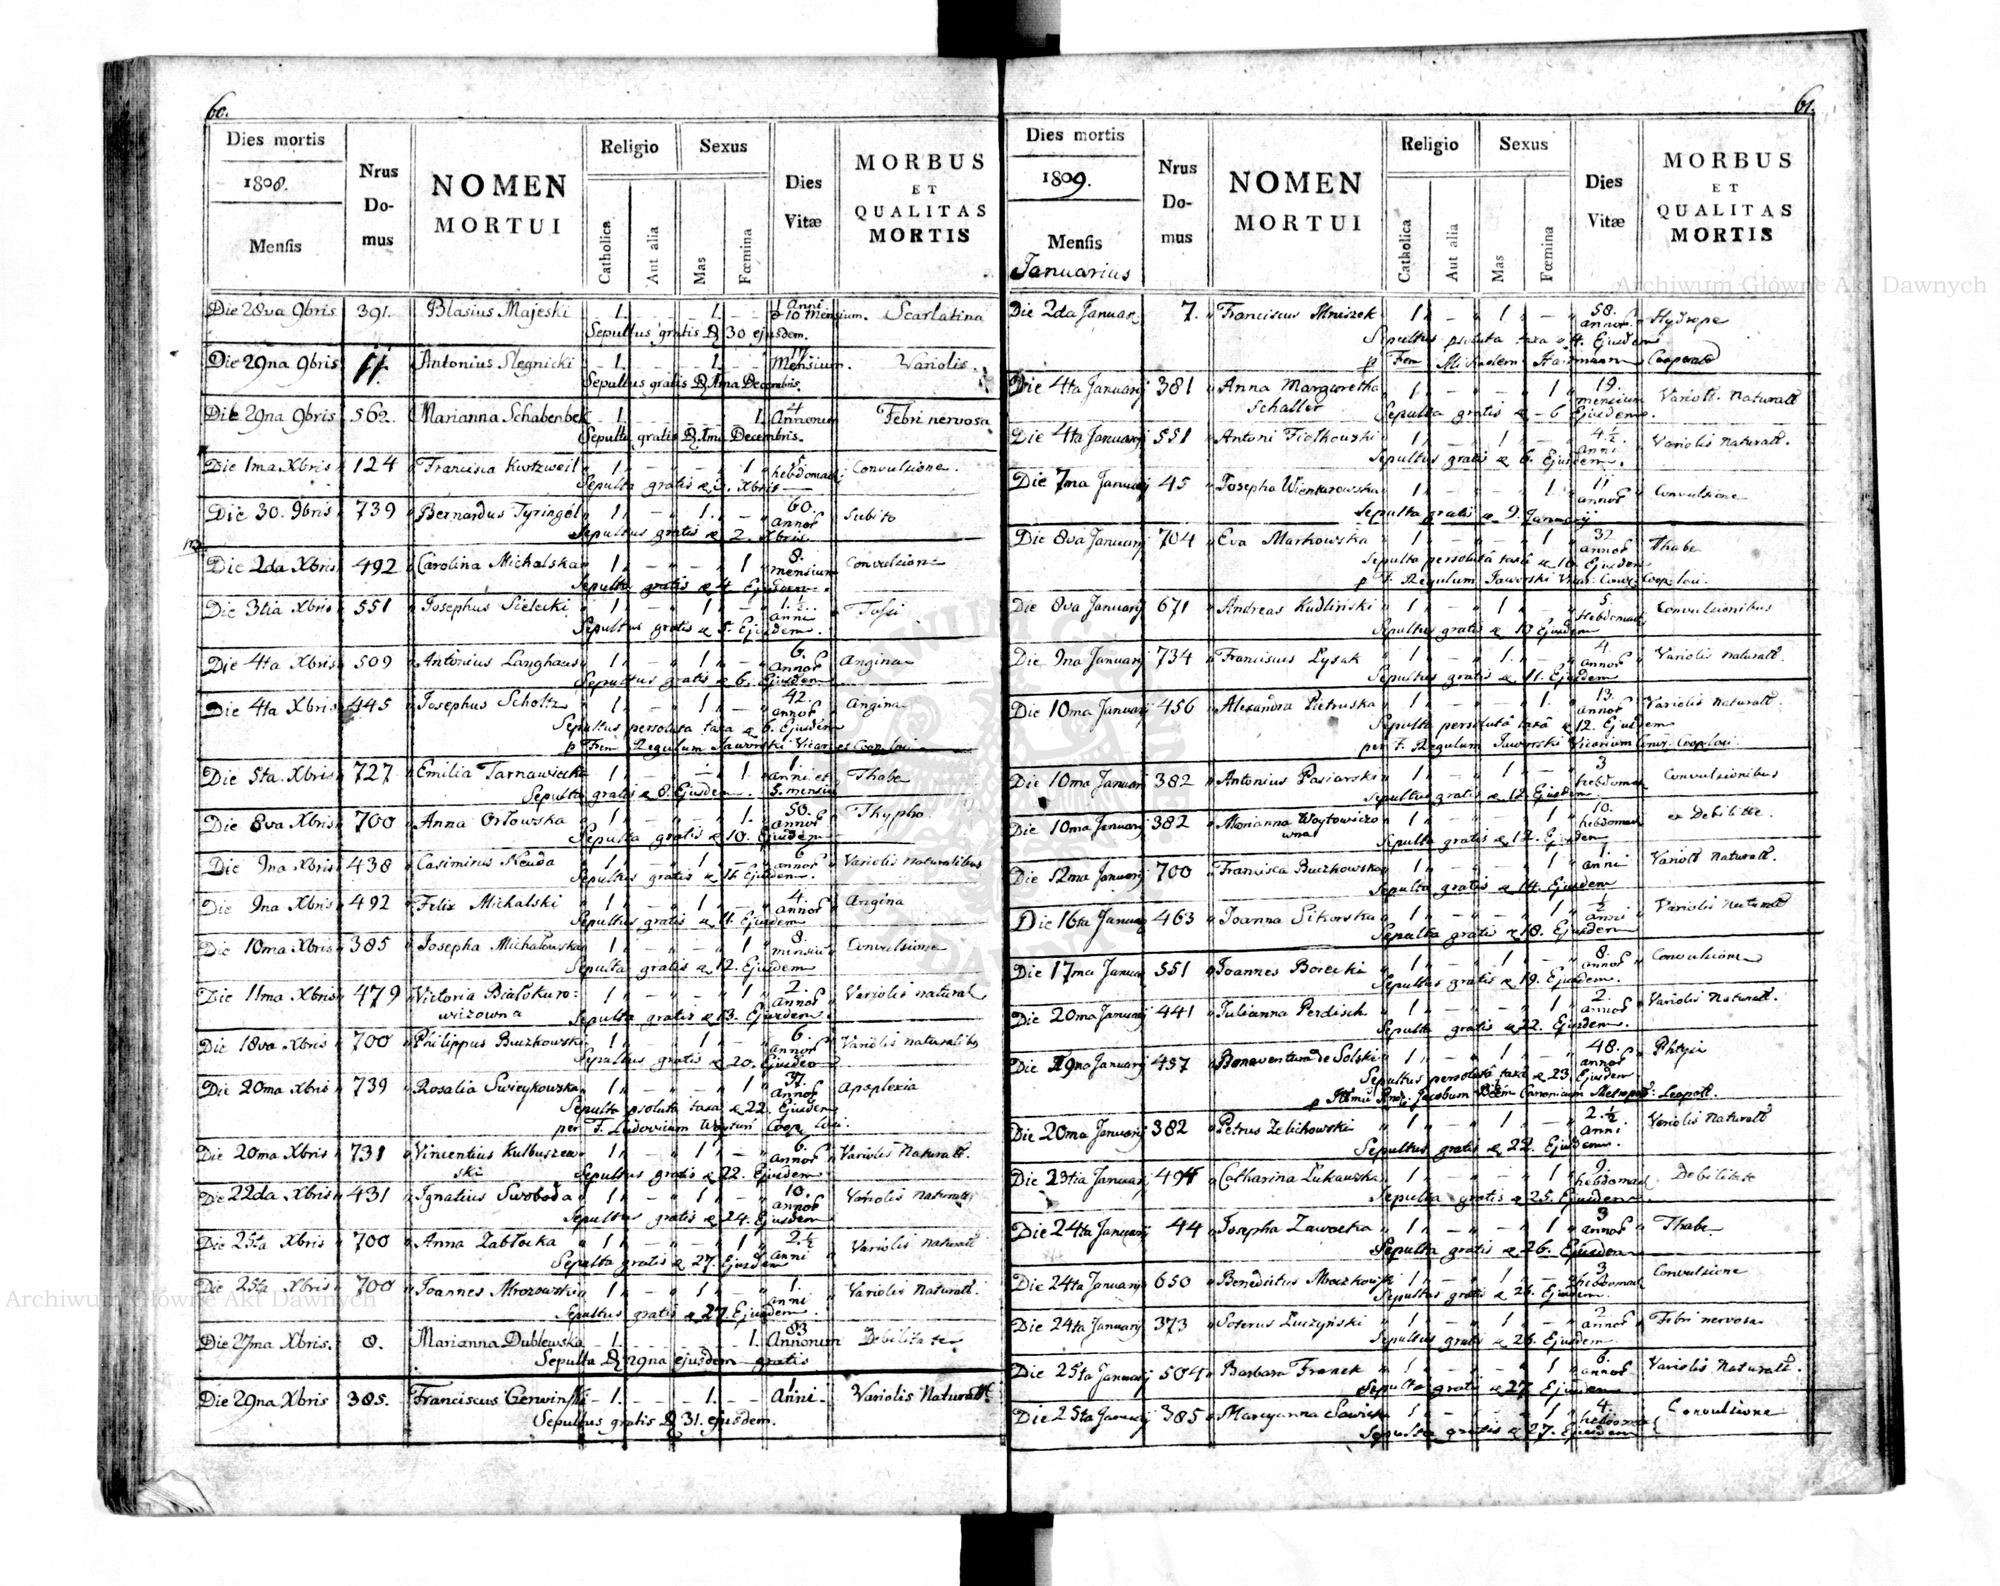 60.
Dies mortis
1808.
Mensis
Nrus Do- mus
NOMEN
MORTUI
Religio
Catholica
Aut alia
Sexus
Mas
Fœmina
Dies Vitæ
MORBUS
ET
QUALITAS
MORTIS
Die 28va 9bris 391. Blasius Majeski 1. 1. 1 Anni & 10 Mensium. Scarlatina
Sepultus gratis D 30 ejusdem.
Die 29na 9bris 11. Antonius Slegnicki 1. 1. Mensium. Variolis.
Sepultus gratis D 1ma Decembris.
Die 29na 9bris 562. Marianna Schabenbek 1. 1. 4 Annorum Febri nervosa
Sepulta gratis D 1ma Decembris.
Die 1ma Xbris 124 Francisca Kurtzweil 1 1 hebdomad: Convulsione.
Sepulta gratis 3. Xbris
Die 30. 9bris 739 Bernardus Tyringel 1 1. 60. annor Subito
Sepultus gratis 2. Xbris
Die 2da Xbris 492 Carolina Michalska 1 1 8. mensium Convulsione
Sepulta gratis 4. Ejusdem.
Die 3tia Xbris 551 Josephus Sielecki 1 1 1. ½. anni Tussi
Sepultus gratis 5. Ejusdem.
Die 4ta Xbris 509 Antonius Langhaus 1 1 6. annor Angina
Sepultus gratis 6. Ejusdem
Die 4ta Xbris 445 Josephus Scholtz 1 1 42. annor Angina
Sepultus persoluta taxa 6. Ejusdem
p Frem Regulum Jaworski Vicar et Coop loci
Die 5ta Xbris 727 Emilia Tarnawiecka 1 1 1. anni et 5. mensiu Thabe
Sepulta gratis 8. Ejusdem.
Die 8va Xbris 700 Anna Orłowska 1 1. 50. annor Thypho.
Sepulta gratis 10. Ejusdem
Die 9na Xbris 438 Casimirus Neuda 1 1 6 annor Variolis naturalibus
Sepultus gratis 11. Ejusdem.
Die 9na Xbris 492 Felix Michalski 1 1 4. annor Angina
Sepultus gratis 11. Ejusdem
Die 10ma Xbris 385 Josepha Michałowska 1 1 8. mensiu Convulsione
Sepulta gratis 12. Ejusdem
Die 11ma Xbris 479 Victoria Białokuro: 1 1 2. annor Variolis natural
wiczowna Sepulta gratis 13. Ejusdem.
Die 18va Xbris 700 Philippus Buczkowski 1 1 6. annor Variolis naturalibs
Sepultus gratis 20. Ejusdem
Die 20ma Xbris 739 Rosalia Swieykowska 1 1 37. annor Apoplexia
Sepulta psoluta taxa 22. Ejusdem
per F. Ludovicum Coop loci.
Die 20ma Xbris 731 Vincentius Kulbuszew 1 1 6. annor Variolis Naturall.
ski Sepultus gratis 22. Ejusdem
Die 22da Xbris 431 Ignatius Swoboda 1 1 10. annor Variolis naturall
Sepultus gratis 24. Ejusdem
Die 25ta Xbris 700 Anna Zabłocka 1 1 2. ½ anni Variolis naturall
Sepulta gratis 27. Ejusdem
Die 25ta Xbris 700 Joannes Mrozowski 1 1 1. anni Variolis Naturall.
Sepultus gratis 27. Ejusdem.
Die 27ma Xbris. 8. Marianna Dublewska 1. 1. 83 Annorum Debilitate
Sepulta D 29na ejusdem gratis
Die 29na Xbris 385. Franciscus Gerwinski 1. 1. 1 Anni. Variolis Naturall.
Sepultus gratis D 31. ejusdem.
61.
Dies mortis
1809.
Mensis
Januarius
Nrus Do- mus
NOMEN
MORTUI
Religio
Catholica
Aut alia
Sexus
Mas
Fœmina
Dies Vitæ
MORBUS
ET
QUALITAS
MORTIS
Die 2da Januar. 7. Franciscus Mniszek 1 1 58. annor. Hydrope
Sepultus psoluta taxa 4. Ejusdem
p Frem Michaelem Hartmann Cooperato
Die 4ta January 381 Anna Margaretha 1 1 19. mensium Varioll. Naturall
Schaller Sepulta gratis 6 Ejusdem.
Die 4ta January 551 Antoni Fiołkowski 1 1 4 ½. anni Variolis naturall.
Sepultus gratis 6. Ejusdem.
Die 7ma January 45 Josepha Wientarowska 1 1 11 annor Convulsione
Sepulta gratis 9. January
Die 8va January 704 Eva Markowska 1 1 32 annor Thabe
Sepulta persolutâ taxâ 10. Ejusdem
p F. Regulum Jaworski Vicar: Conv: Coop loci.
Die 8va January 671 Andreas Kudliński 1 1 5. Hebdomad Convulsionibus
Sepultus gratis 10 Ejusdem
Die 9na January 734 Franciscus Lysak 1 1. 4. annor Variolis naturall.
Sepultus gratis 11. Ejusdem
Die 10ma January 456 Alexandra Pietruska 1 1. 13. annor Variolis Naturall.
Sepulta persolutâ taxâ 12. Ejusdem
per F. Regulum Jaworski Vicarium Conv: Coop loci.
Die 10ma January 382 Antonius Pasiarski 1 1 3 hebdomad Convulsionibus
Sepultus gratis 12. Ejusdem
Die 10ma January 382 Marianna Woytowiczo 1 1 10. hebdomad ex Debilitte.
wna Sepulta gratis 12. Ejusdem
Die 12ma January 700 Francisca Buczkowska 1 1 1. anni Variolis Naturall.
Sepulta gratis 14. Ejusdem
Die 16ta January 463 Joanna Sikorska 1 1 ½ anni Variolis Naturall
Sepulta gratis 18. Ejusdem
Die 17ma January 551 Joannes Boiecki 1 1 8. annor Convulsione
Sepultus gratis 19. Ejusdem.
Die 20ma January 441 Julianna Perdisch 1 1 2. annor Variolis Naturall.
Sepulta gratis 22. Ejusdem.
Die 19na January 457 Bonaventura de Solski 1 1 48. annor Phtysi
Sepultus persolutâ taxâ 23. Ejusdem
p Jacobum Canonicum Metropol: Leopoll.
Die 20ma January 382 Petrus Zelichowski 1 1 2. ½. anni Variolis Naturall
Sepultus gratis 22. Ejusdem.
Die 23tia January 494 Catharina Lukawska 1 1 9. hebdomad Debilitate
Sepulta gratis 25. Ejusdem
Die 24ta January 44 Josepha Zawocka 1 1 3 annor Thabe
Sepulta gratis 26. Ejusdem
Die 24ta January 650 Benedictus Mroczkowsk 1 1 3 hebdomad Convulsione
Sepultus gratis 26. Ejusdem.
Die 24ta January 373 Soterus Łuczyński 1 1 2 annor Febri nervosa
Sepultus gratis 26. Ejusdem.
Die 25ta January 504 Barbara Franek 1 1 6. annor Variolis Naturall.
Sepulta gratis 27. Ejusdem
Die 25ta January 385 Maryanna Sawicka 1 1 4. hebdomad Convulsione
Sepulta gratis 27. Ejusdem
Archiwum Główne Akt Dawnych
Archiwum Główne Akt Dawnych